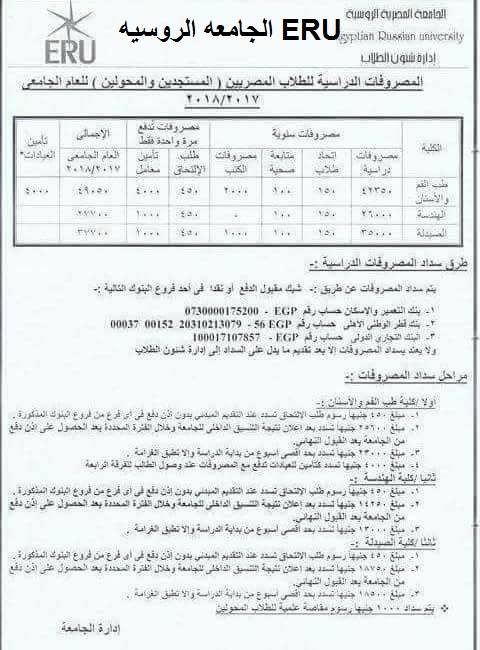 الجامعة المصرية الروسية
Egyptian Russian university
إدارة شئون الطلاب
ERU
ERU الجامعه الروسيه
المصروفات الدراسية للطلاب المصريين ( المستجدين والمحولين ) للعام الجامعى
٢٠١٨/٢٠١٧
الكلية مصروفات سنوية مصروفات تُدفع مرة واحدة فقط الإجمالى تأمين العيادات*
مصروفات دراسية إتحاد طلاب متابعة صحية مصروفات الكتب طلب الإلتحاق تأمين معامل العام الجامعى ٢٠١٨/٢٠١٧
طب الفم والأسنان ٤٢٣٥٠ ١٥٠ ١٠٠ ٢٠٠٠ ٤٥٠ ٤٠٠٠ ٤٩٠٥٠ ٤٠٠٠
الهندسة ٢٦٠٠٠ ١٥٠ ١٠٠ ٠ ٤٥٠ ١٠٠٠ ٢٧٧٠٠
الصيدلة ٣٥٠٠٠ ١٥٠ ١٠٠ ١٠٠٠ ٤٥٠ ١٠٠٠ ٣٧٧٠٠
طرق سداد المصروفات الدراسية :-
يتم سداد المصروفات عن طريق :- شيك مقبول الدفع أو نقدا فى أحد فروع البنوك التالية :-
١- بنك التعمير والإسكان حساب رقم EGP - 0730000175200
٢- بنك قطر الوطنى الأهلى حساب رقم EGP 56 - 20310213079 00152 00037
٣- البنك التجارى الدولى حساب رقم EGP - 100017107857
ولا يعتد بسداد المصروفات إلا بعد تقديم ما يدل على السداد إلى إدارة شئون الطلاب
مراحل سداد المصروفات :-
أولا /كلية طب الفم والأسنان :-
١- مبلغ ٤٥٠ جنيها رسوم طلب الالتحاق تسدد عند التقديم المبدئى بدون إذن دفع فى أى فرع من فروع البنوك المذكورة .
٢- مبلغ ٢٥٦٠٠ جنيهاً تسدد بعد إعلان نتيجة التنسيق الداخلى للجامعة وخلال الفترة المحددة بعد الحصول على إذن دفع
من الجامعة بعد القبول النهائى.
٣- مبلغ ٢٣٠٠٠ جنيهاً تسدد بحد أقصى أسبوع من بداية الدراسة وإلا تطبق الغرامة .
٤- مبلغ ٤٠٠٠ جنيهاً تسدد كتأمين للعيادات تدفع مع المصروفات عند وصول الطالب للفرقة الرابعة
ثانيا /كلية الهندسة :-
١- مبلغ ٤٥٠ جنيها رسوم طلب الالتحاق تسدد عند التقديم المبدئى بدون إذن دفع فى أى فرع من فروع البنوك المذكورة .
٢- مبلغ ١٤٢٥٠ جنيهاً تسدد بعد إعلان نتيجة التنسيق الداخلى للجامعة وخلال الفترة المحددة بعد الحصول على إذن دفع
من الجامعة بعد القبول النهائى.
٣- مبلغ ١٣٠٠٠ جنيهاً تسدد بحد أقصى أسبوع من بداية الدراسة وإلا تطبق الغرامة .
ثالثا /كلية الصيدلة :-
١- مبلغ ٤٥٠ جنيها رسوم طلب الالتحاق تسدد عند التقديم المبدئى بدون إذن دفع فى أى فرع من فروع البنوك المذكورة .
٢- مبلغ ١٨٧٥٠ جنيهاً تسدد بعد إعلان نتيجة التنسيق الداخلى للجامعة وخلال الفترة المحددة بعد الحصول على إذن دفع
من الجامعة بعد القبول النهائى.
٣- مبلغ ١٨٥٠٠ جنيهاً تسدد بحد أقصى أسبوع من بداية الدراسة وإلا تطبق الغرامة .
❖ يتم سداد ١٠٠٠ جنيها رسوم مقاصة علمية للطلاب المحولين
إدارة الجامعة